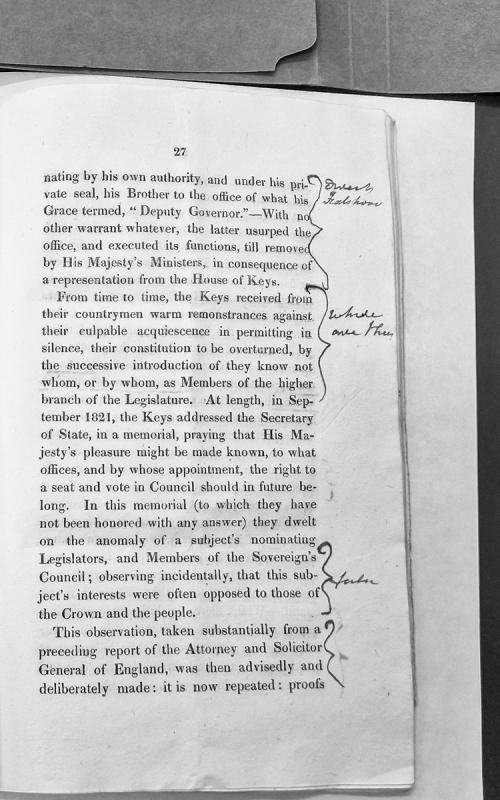 27
nating by his own authority, and under his pri-
vate seal, his Brother to the office of what his
Grace termed, “ Deputy Governor.”—With no
other warrant whatever, the latter usurped the
office, and executed its functions, till removed
by His Majesty's Ministers, in consequence of
a representation from the House of Keys.
From time to time, the Keys received from
their countrymen warm remonstrances against
their culpable acquiescence in permitting in
silence, their constitution to be overturned, by
the successive introduction of they know not
whom, or by whom, as Members of the higher
branch of the Legislature. At length, in Sep-
tember 1821, the Keys addressed the Secretary
of State, in a memorial, praying that His Ma-
jesty's pleasure might be made known, to what
offices, and by whose appointment, the right to
a seat and vote in Council should in future be-
long. In this memorial (to which they have
not been honored with any answer) they dwelt
on the anomaly of a subject's nominating
Legislators, and Members of the Sovereign's
Council; observing incidentally, that this sub-
ject's interests were often opposed to those of
the Crown and the people.
This observation, taken substantially from a
preceding report of the Attorney and Solicitor
General of England, was then advisedly and
deliberately made: it is now repeated: proofs